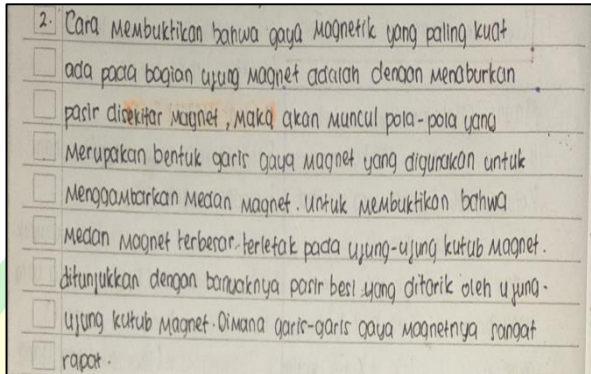 2. Cara Membuktikan bahwa gaya Magnetik yang paling kuat
ada pada bagian ujung Magnet adalah dengan Menaburkan
pasir disekitar Magnet, Maka akan Muncul pola-pola yang
Merupakan bentuk garis gaya Magnet yang digunakan untuk
Menggambarkan Medan Magnet. Untuk Membuktikan bahwa
Medan Magnet terbesar terletak pada ujung-ujung kutub Magnet.
ditunjukkan dengan banyaknya pasir besi yang ditarik oleh ujung-
ujung kutub Magnet. Dimana garis-garis gaya Magnetnya sangat
rapat.